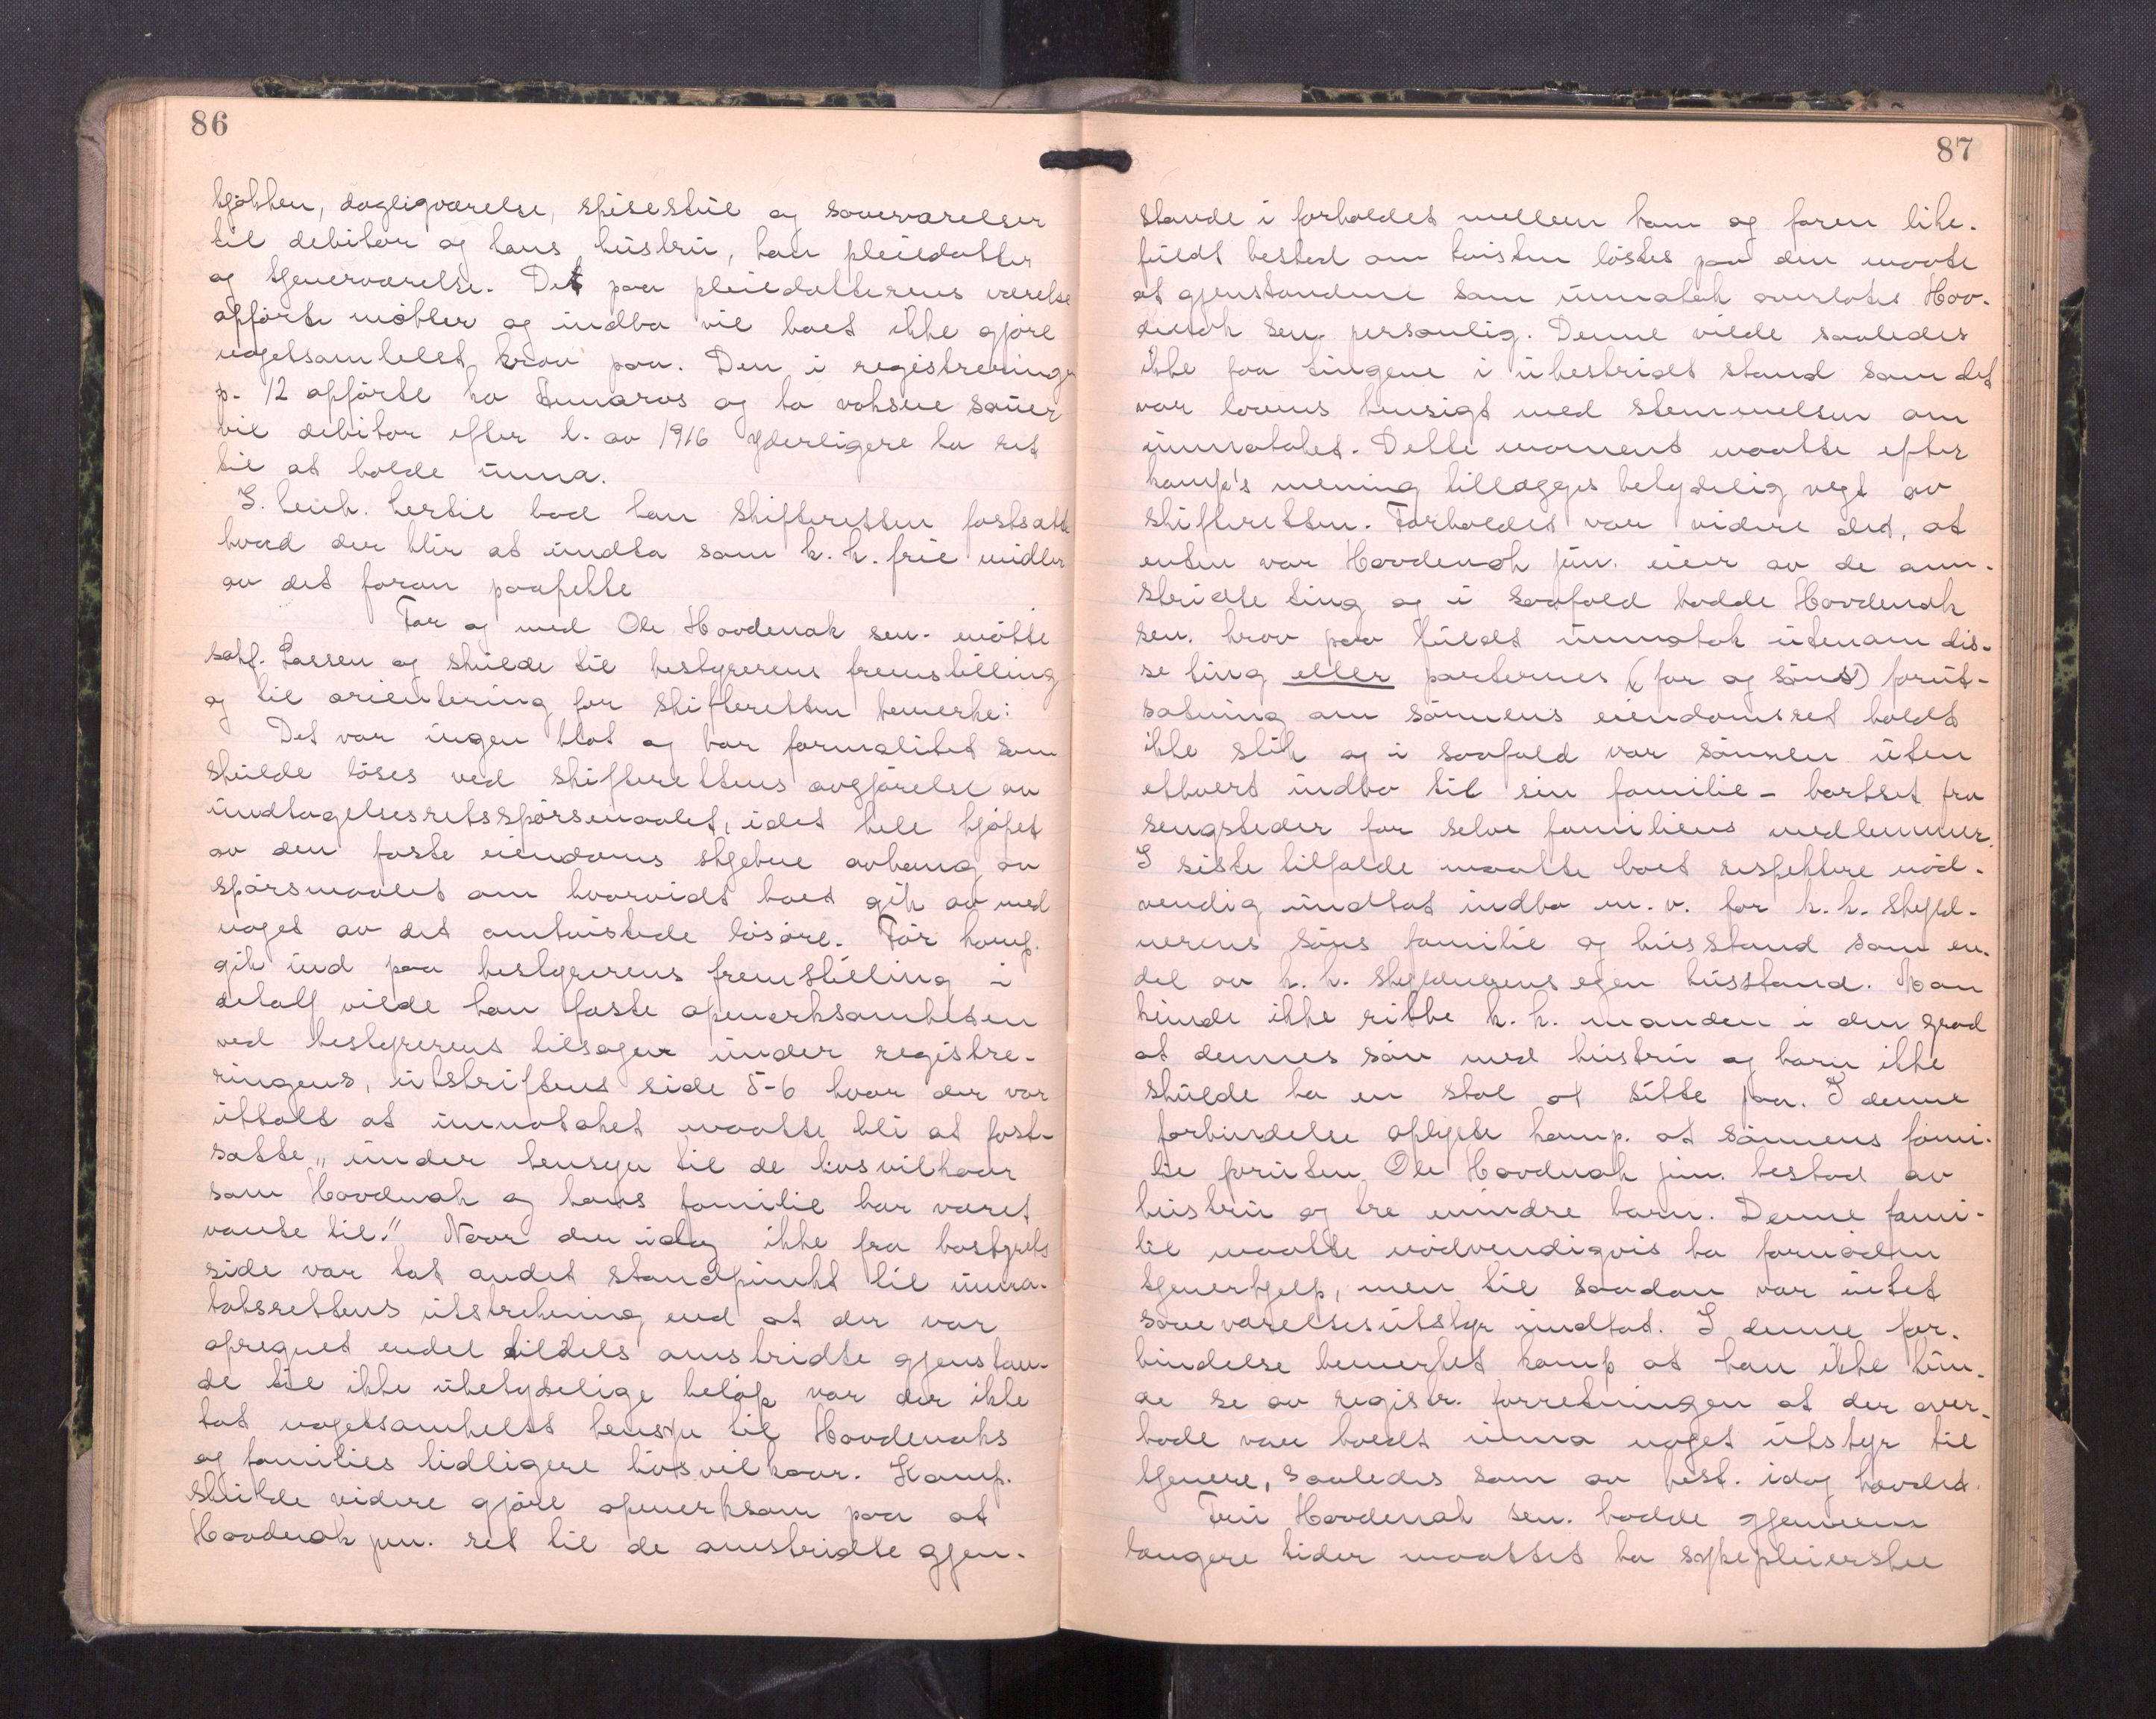 86
kjøkken, dagligværelse, spisestue og soveværelser
til debitor og hans hustru, han pleiedatter
og tjenerværelse. Det paa pleiedatterens værelse
opførte møbler og indbo vil boet ikke gjøre
nogetsomhelst krav paa. Den i registreringen
p. 12 opførte ko Dunaros og to voksne sauer
vil debitor efter l. av 1916 yderligere ha ret
til at holde unna.
I henh. hertil bad han skifteretten fastsætte
hvad der blir at undta som k.k. frie midler
av det foran paapekte
For og med Ole Hovdenak sen. møtte
sakf. Lassen og skulde til bestyrerens fremstilling
og til orientering for skifteretten bemerke:
Det var ingen blot og bar formalitet som
skulde løses ved skifterettens avgjørelse av
undtagelsesretsspørsmaalet, idet hele kjøpet
av den faste eiendoms skjebne avhang av
spørsmaalet om hvorvidt boet gik av med
noget av det omtvistede løsøre. Før komp.
gik ind paa bestyrerens fremstilling i
detalj vilde han feste opmerksomheten
ved bestyrerens tilsagn under registre-
ringens, utskriftens side 5-6 hvor der var
uttalt at unnataket maatte bli at fast-
sætte „under hensyn til de livsvilkaar
som Hovdenak og hans familie har været
vante til." Naar der idag ikke fra bostyrets
side var tat andet standpunkt til unna-
taksrettens utstrekning end at der var
opregnet endel tildels omstridte gjenstan-
de til ikke ubetydelige beløp var der ikke
tat nogetsomhelst hensyn til Hovdenaks
og families tidligere livsvilkaar. Komp.
skulde videre gjøre opmerksom paa at
Hovdenak jun. ret til de omstridte gjen-
87
stande i forholdet mellem ham og faren like-
fuldt bestod om tvisten løstes paa den maate
at gjenstandene som unnatak overlotes Hov-
denak sen. personlig. Denne vilde saaledes
ikke faa tingene i ubestridt stand som det
var lovens hensigt med stemmelsen om
unnataket. Dette moment maatte efter
komp's mening tillægges betydelig vegt av
skifteretten. Forholdet var videre det, at
enten var Hovdenak jun. eier av de om-
stridte ting og i saafald hadde Hovdenak
sen. krav paa fuldt unnatak utenom dis-
se ting eller parternes (far og søns) forut-
sætning om sønnens eiendomsret holdt
ikke stik og i saafald var sønnen uten
ethvert indbo til sin familie - bortset fra
sengsteder for selve familiens medlemmer.
I siste tilfælde maatte boet respektere nød-
vendig undtat indbo m.v. for k.k. skyld-
nerens søns familie og husstand som en
del av k.k. skyldnerens egen husstand. Man
kunde ikke ribbe k.k. manden i den grad
at dennes søn med hustru og barn ikke
skulde ha en stol at sitte paa. I denne
forbindelse oplyste komp. at sønnens fami-
lie foruten Ole Hovdenak jun. bestod av
hustru og tre mindre barn. Denne fami-
lie maatte nødvendigvis ha fornøden
tjenerhjelp, men til saadan var intet
soveværelsesutstyr undtat. I denne for-
bindelse bemerket komp at han ikke kun-
de se av registr. forretningen at der over-
hode var holdt unna noget utstyr til
tjenere, saaledes som av best. idag hævdet.
Fru Hovdenak sen. hadde gjennem
længere tider maattet ha sykepleierske